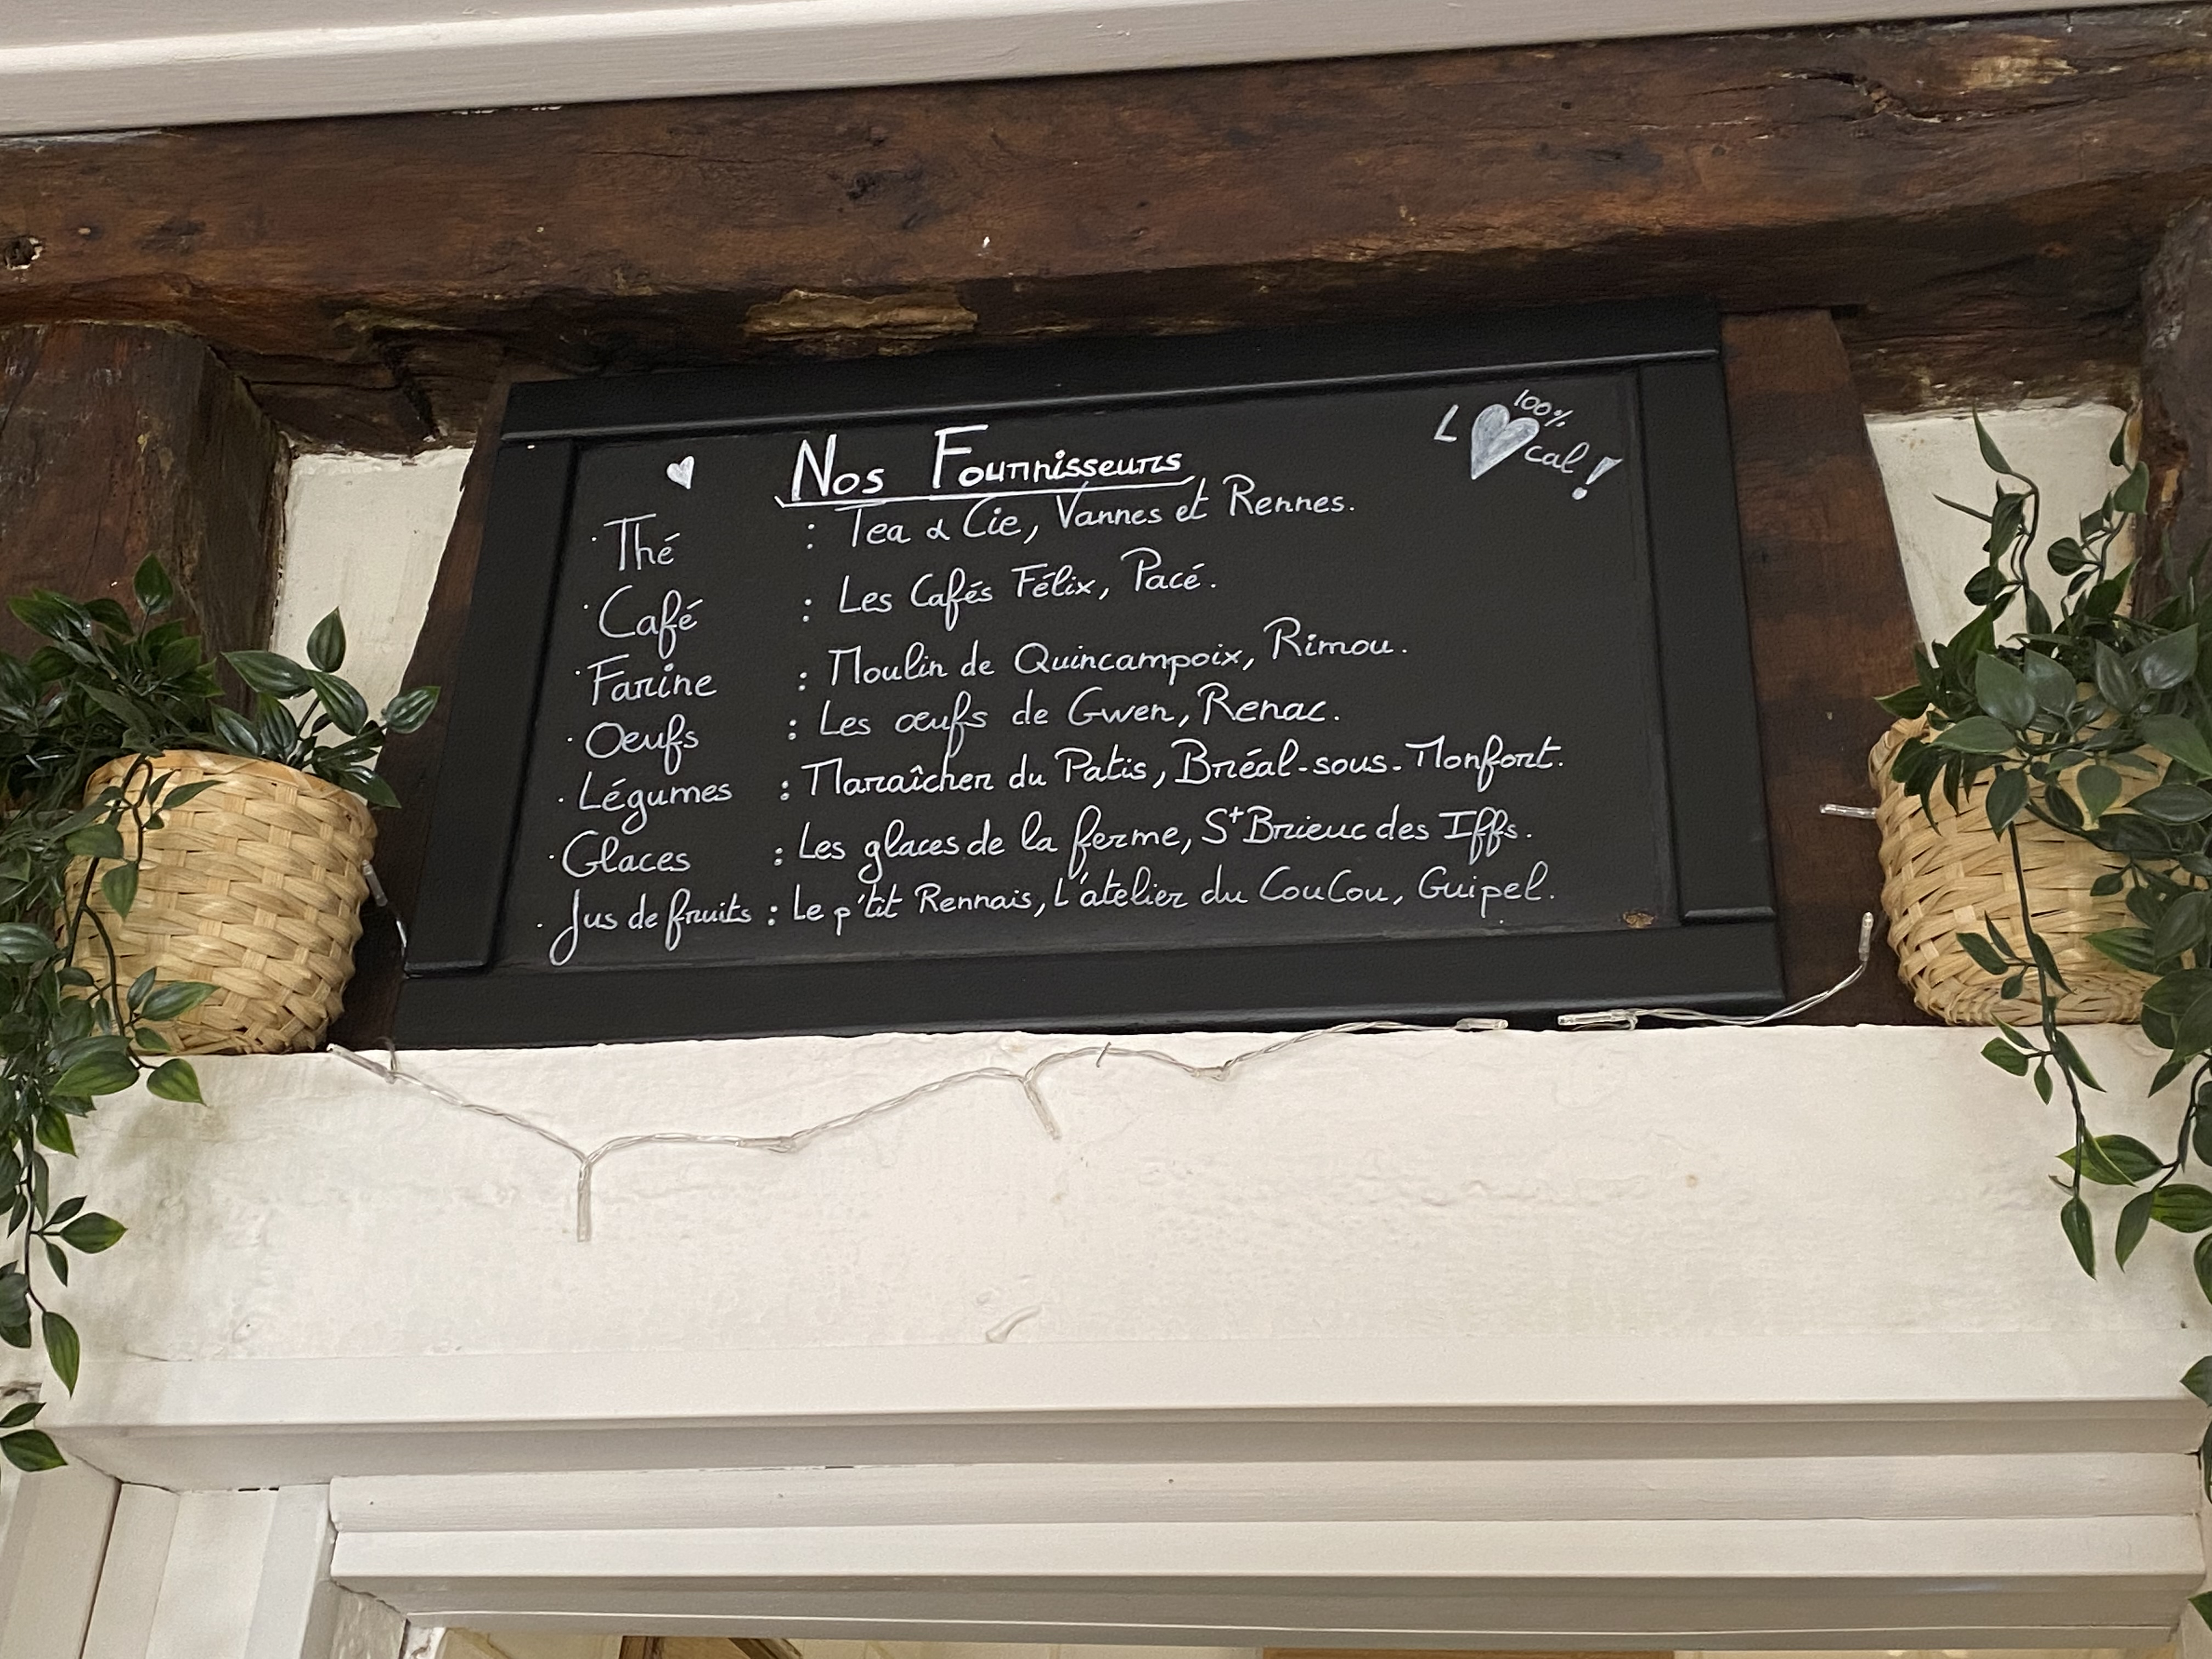 Nos Fournisseurs
100%
L♥cal !
· Thé : Tea & Cie, Vannes et Rennes.
· Café : Les Cafés Félix, Pacé.
· Farine : Moulin de Quincampoix, Rimou.
· Oeufs : Les œufs de Gwen, Renac.
· Légumes : Maraîcher du Patis, Bréal-sous-Monfort.
· Glaces : Les glaces de la ferme, St Brieuc des Iffs.
· Jus de fruits : Le p'tit Rennais, L'atelier du CouCou, Guipel.